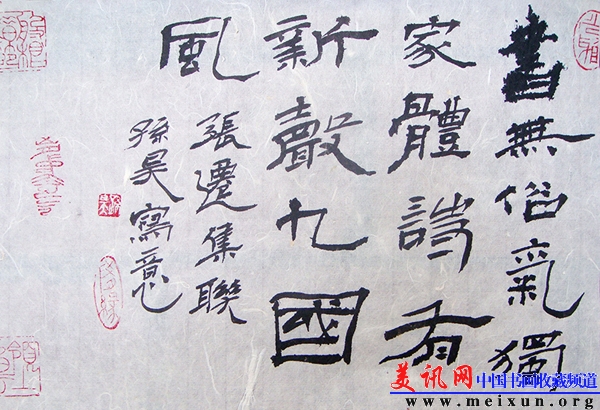 書無俗氣獨
家體詩有
新聲九國
風
張遷集聯
孫昊寫意
美讯网 中国书画收藏频道
www.meixun.org